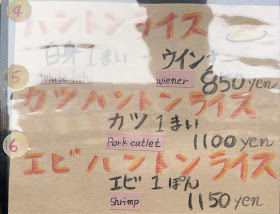 4
ハントンライス
白身1まい ウインナー
White fish wiener 850yen
5
カツハントンライス
カツ1まい
Pork cutlet 1100yen
6
エビハントンライス
エビ1ぽん
Shrimp 1150yen